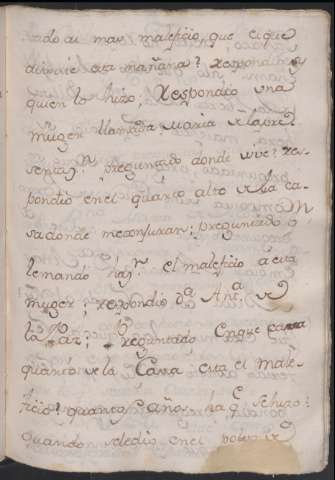 dado ai mas maleficio, que el que
dijiste esta mañana? Respondio
quien lo hizo; Respondio una
muger llamada Maria
preguntado donde vive? res-
pondio en el quarto alto de la ca-
sa donde me conjuran; preguntado
le mando haz.r el maleficio á esta
muger; respondio D.a Ant.a de
la Paz; Preguntado Enque parte
quarto de la Cassa esta el male-
ficio? quantos años ha q.e se hizo?
quando se le dio en el polvo de